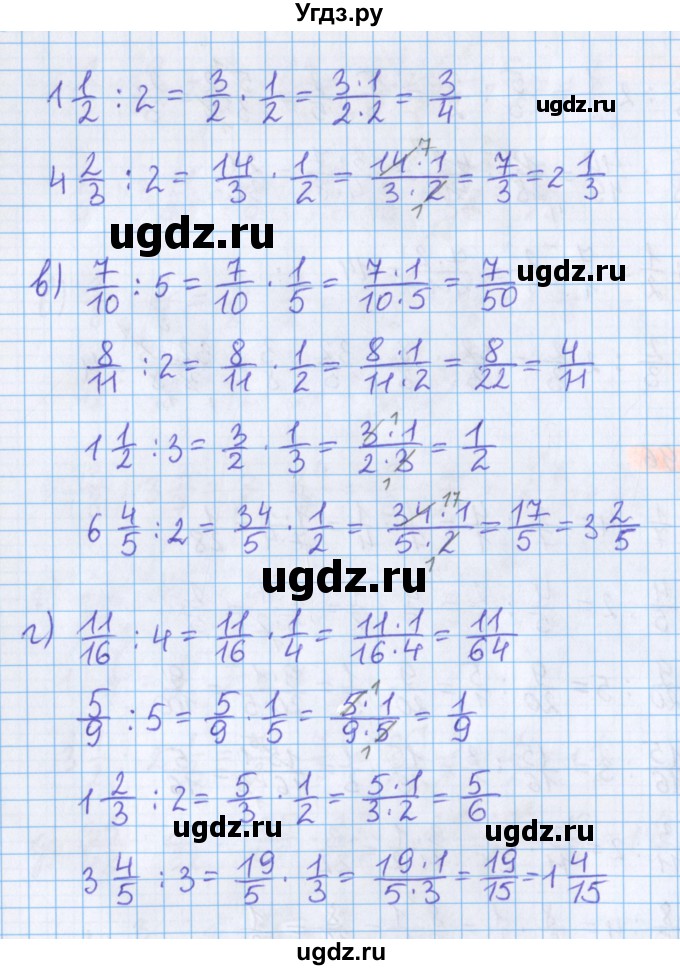 Угдз.ру
1 1/2 : 2 = 3/2 · 1/2 = 3·1/2·2 = 3/4
ugdz.ru
4 2/3 : 2 = 14/3 · 1/2 = 14·1/3·2 = 7/3 = 2 1/3
7
1
ugdz.ru
в) 7/10 : 5 = 7/10 · 1/5 = 7·1/10·5 = 7/50
ugdz.ru
8/11 : 2 = 8/11 · 1/2 = 8·1/11·2 = 8/22 = 4/11
1 1/2 : 3 = 3/2 · 1/3 = 3·1/2·3 = 1/2
1
1
6 4/5 : 2 = 34/5 · 1/2 = 34·1/5·2 = 17/5 = 3 2/5
17
1
ugdz.ru
г) 11/16 : 4 = 11/16 · 1/4 = 11·1/16·4 = 11/64
5/9 : 5 = 5/9 · 1/5 = 5·1/9·5 = 1/9
1
1
1 2/3 : 2 = 5/3 · 1/2 = 5·1/3·2 = 5/6
ugdz.ru
ugdz.ru
3 4/5 : 3 = 19/5 · 1/3 = 19·1/5·3 = 19/15 = 1 4/15
ugdz.ru
ugdz.ru